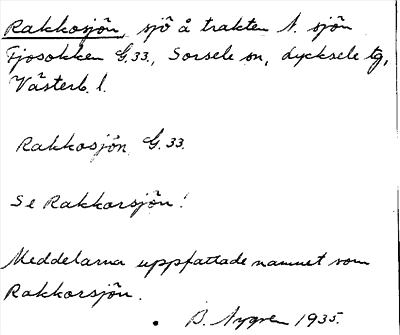 Rakkosjön, sjö å trakten N. sjön
Fjosokken G.33., Sorsele sn, Lycksele tg,
Västerb. l.
Rakkosjön G.33.
Se Rakkorsjön!
Meddelarna uppfattade namnet som
Rakkorsjön.
B. Nygren 1935.